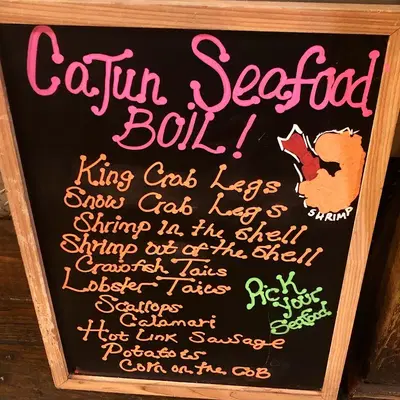 Cajun Seafood
BOIL!
King Crab Legs
Snow Crab Legs
Shrimp in the shell
Shrimp out of the shell
Crawfish Tails
Lobster Tails
Scallops
Calamari
Hot Link Sausage
Potatoes
Corn on the COB
SHRIMP
Pick
your
Seafood